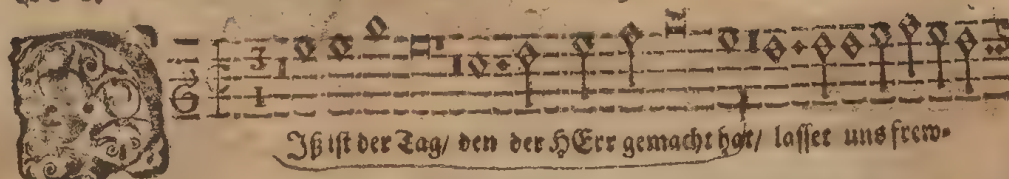 3
1
G
D Jß ist der Tag/ den der HErr gemacht hat/ lasset uns frew-